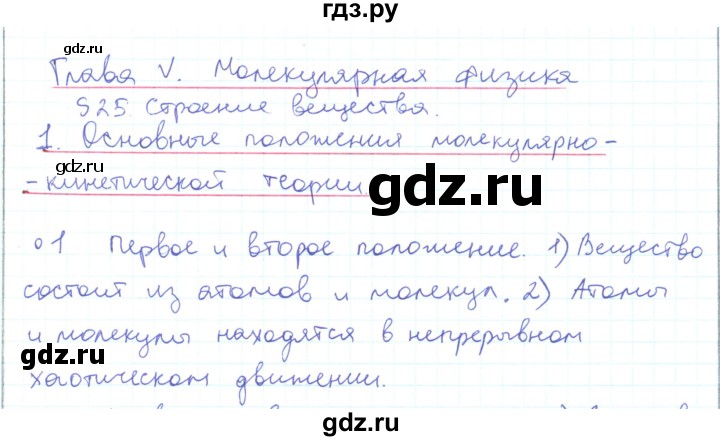 гдз.ру
gdz.ru
Глава V. Молекулярная физика
§25. Строение вещества.
1. Основные положения молекулярно-
gdz.ru
-кинетической теории
gdz.ru
о1 Первое и второе положение. 1) Вещество
состоит из атомов и молекул. 2) Атомы
gdz.ru
и молекулы находятся в непрерывном
gdz.ru
хаотическом движении.
gdz.ru